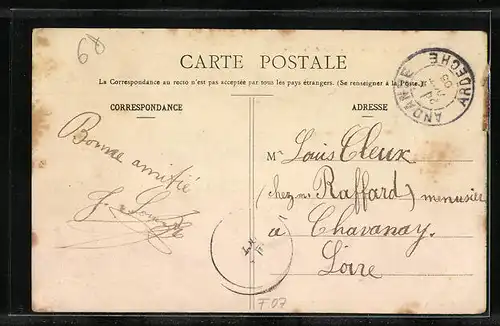 60
CARTE POSTALE
La Correspondance au recto n'est pas acceptée par tous les pays étrangers. (Se renseigner à la Poste.)
CORRESPONDANCE
ADRESSE
ANDANCE
ARDECHE
Bonne amitié
Mr Louis Cleux
(chez mr Raffard) menuisier
à Chavanay.
Loire
F 07